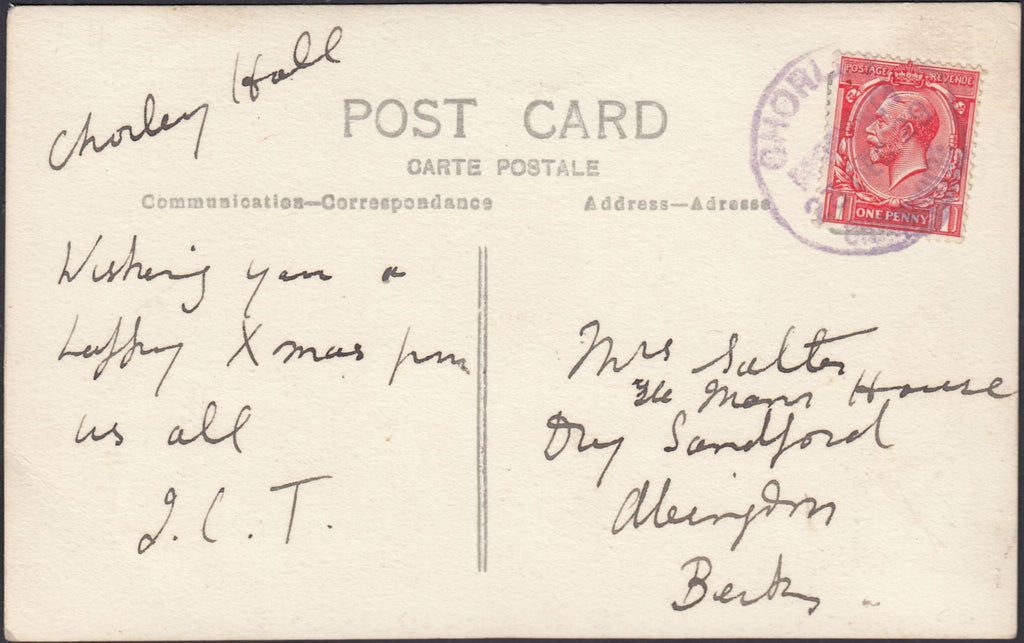 Chorley Hall
POST CARD
CARTE POSTALE
Communication—Correspondance
Address—Adresse
POSTAGE REVENUE
1 ONE PENNY 1
CHORL
Wishing you a
happy Xmas from
us all
I. C. T.
Mrs Salter
The Manor House
Dry Sandford
Abingdon
Berks